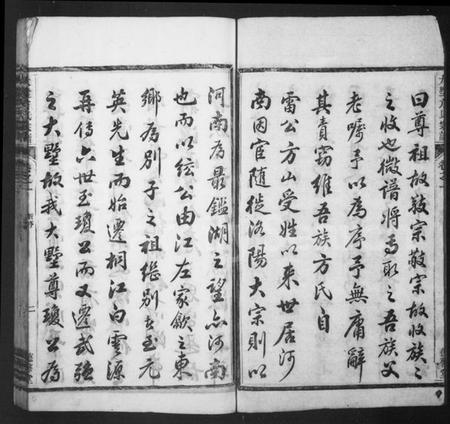 曰尊祖故敬宗敬宗故收族之
之收也微譜將焉取之吾族父
老囑予以為序予無庸辭
其責窃維吾族方氏自
雷公方山受姓以来世居河
南因宦隨徙洛陽大宗則以
河南為最鑑湖之望亦河南
也而以紘公由江左家歙之東
鄉為別子之祖繼別者至元
英先生而始遷桐江白雲源
再傳六世至瓊公而又遷武強
之大墅故我大墅尊瓊公為